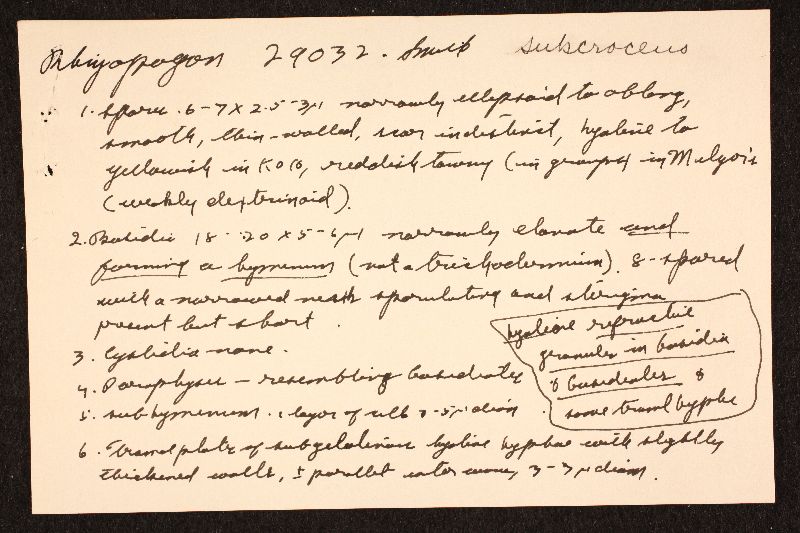 Rhizopogon 29032. Smith subcroceus
1. Spores 6-7 x 2.5-3µ narrowly ellipsoid to oblong,
smooth, thin-walled, scar indistinct, hyaline to
yellowish in KOH, reddish tawny (in groups) in Melzer's
(weakly dextrinoid).
2. Basidia 18-20 x 5-6µ narrowly clavate and
forming a hymenium (not a trichodermium). 8-spored
with a narrowed neck sporulating and sterigma
present but short.
3. Cystidia none.
hyaline refractive
granules in basidia
& basidioles &
some tramal hyphae
4. Paraphyses - resembling basidioles
5. subhymenium. 1 layer of cells diam
6. Tramal plate of subgelatinous hyaline hyphae with slightly
thickened walls, ± parallel interwoven, diam.